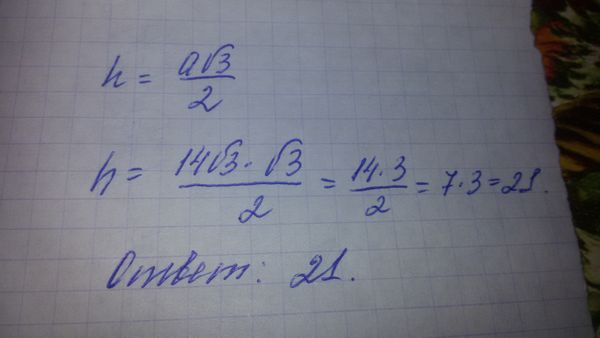 h = a√3/2
h = 14√3·√3/2 = 14·3/2 = 7·3=21.
Ответ: 21.